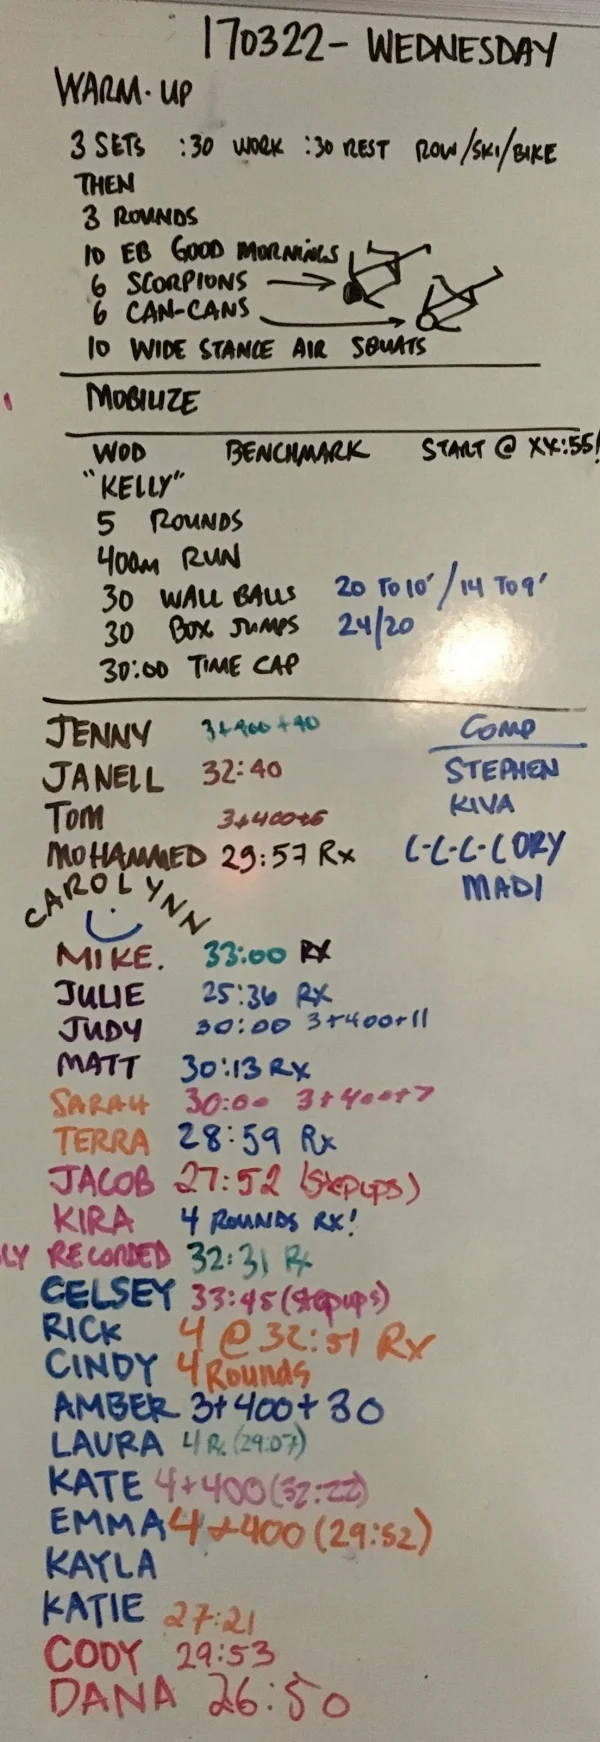 170322 - WEDNESDAY
WARM-UP
3 SETS :30 WORK :30 REST ROW/SKI/BIKE
THEN
3 ROUNDS
10 EB GOOD MORNINGS
6 SCORPIONS
6 CAN-CANS
10 WIDE STANCE AIR SQUATS
MOBILIZE
WOD BENCHMARK START @ XX:55!
"KELLY"
5 ROUNDS
400m RUN
30 WALL BALLS 20 TO 10' / 14 TO 9'
30 BOX JUMPS 24/20
30:00 TIME CAP
JENNY 3+400+40
JANELL 32:40
TOM 3+400+6
MOHAMMED 29:57 Rx
CAROLYNN
MIKE. 33:00 RX
JULIE 25:36 RX
JUDY 30:00 3+400+11
MATT 30:13 RX
SARAH 30:00 3+400+7
TERRA 28:59 Rx
JACOB 27:52 (stepups)
KIRA 4 ROUNDS RX!
LY RECORDED 32:31 Rx
CELSEY 33:45 (stepups)
RICK 4 @ 32:51 Rx
CINDY 4 Rounds
AMBER 3+400+30
LAURA 4 R. (29:07)
KATE 4+400 (32:22)
EMMA 4+400 (29:52)
KAYLA
KATIE 27:21
CODY 29:53
DANA 26:50
COMP
STEPHEN
KIVA
C-C-C-CORY
MADI